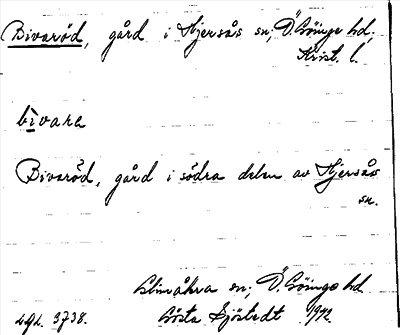 Bivaröd, gård i Hjersås sn; Ö. Göinge hd;
Krist. l.
bivara
Bivaröd, gård i södra delen av Hjersås
sn.
Glimåkra sn; Ö. Göinge hd
Gösta Sjöstedt 1912
3738.